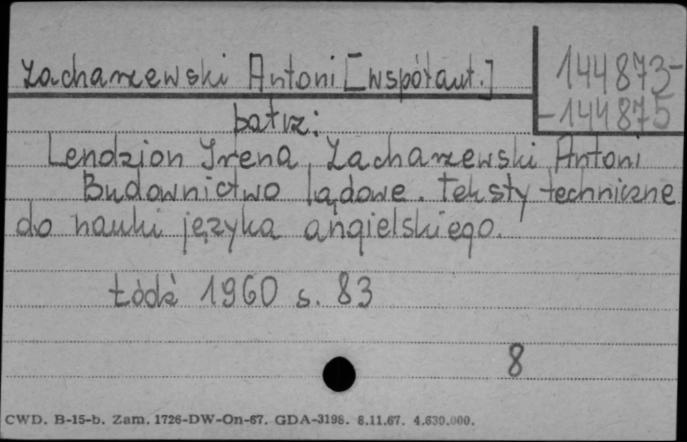 Zacharzewski Antoni [współaut.]
144873-
-144875
patrz:
Lendzion Irena, Zacharzewski Antoni
Budownictwo lądowe. Teksty techniczne
do nauki języka angielskiego.
Łódź 1960 s. 83
8
CWD. B-15-b. Zam. 1726-DW-On-67. GDA-3198. 8.11.67. 4.630.000.